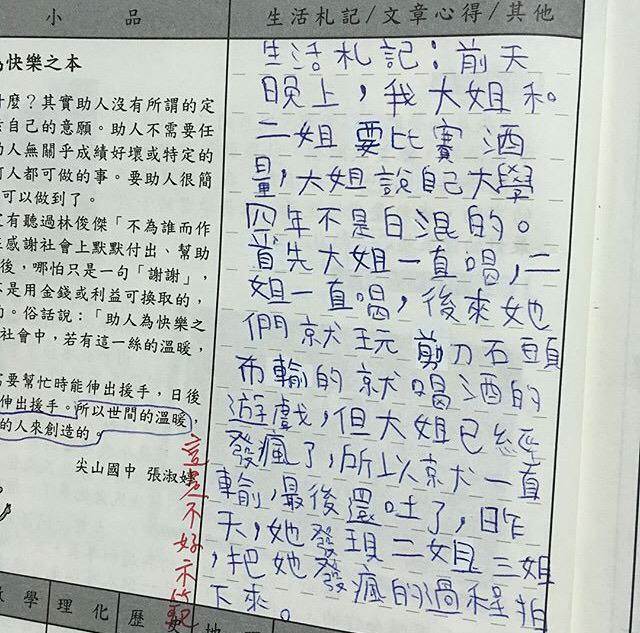 小 品
生活札記/文章心得/其他
為快樂之本
什麼?其實助人沒有所謂的定
自己的意願。助人不需要任
助人無關乎成績好壞或特定的
何人都可做的事。要助人很簡
可以做到了。
有聽過林俊傑「不為誰而作
感謝社會上默默付出、幫助
後,哪怕只是一句「謝謝」,
不是用金錢或利益可換取的,
的。俗話說:「助人為快樂之
社會中,若有這一絲的溫暖,
需要幫忙時能伸出援手,日後
伸出援手。所以世間的溫暖,
的人來創造的。
尖山國中 張淑
生活札記:前天
晚上,我大姐和
二姐要比賽酒
量,大姐說自己大學
四年不是白混的。
首先大姐一直喝,二
姐一直喝,後來她
們就玩剪刀石頭
布輸的就喝酒的
遊戲,但大姐已經
發瘋了,所以就一直
輸,最後還吐了,昨
天,她發現二姐三姐
,把她發瘋的過程拍
下來。
這是不好示範
數學 理化 歷史 地